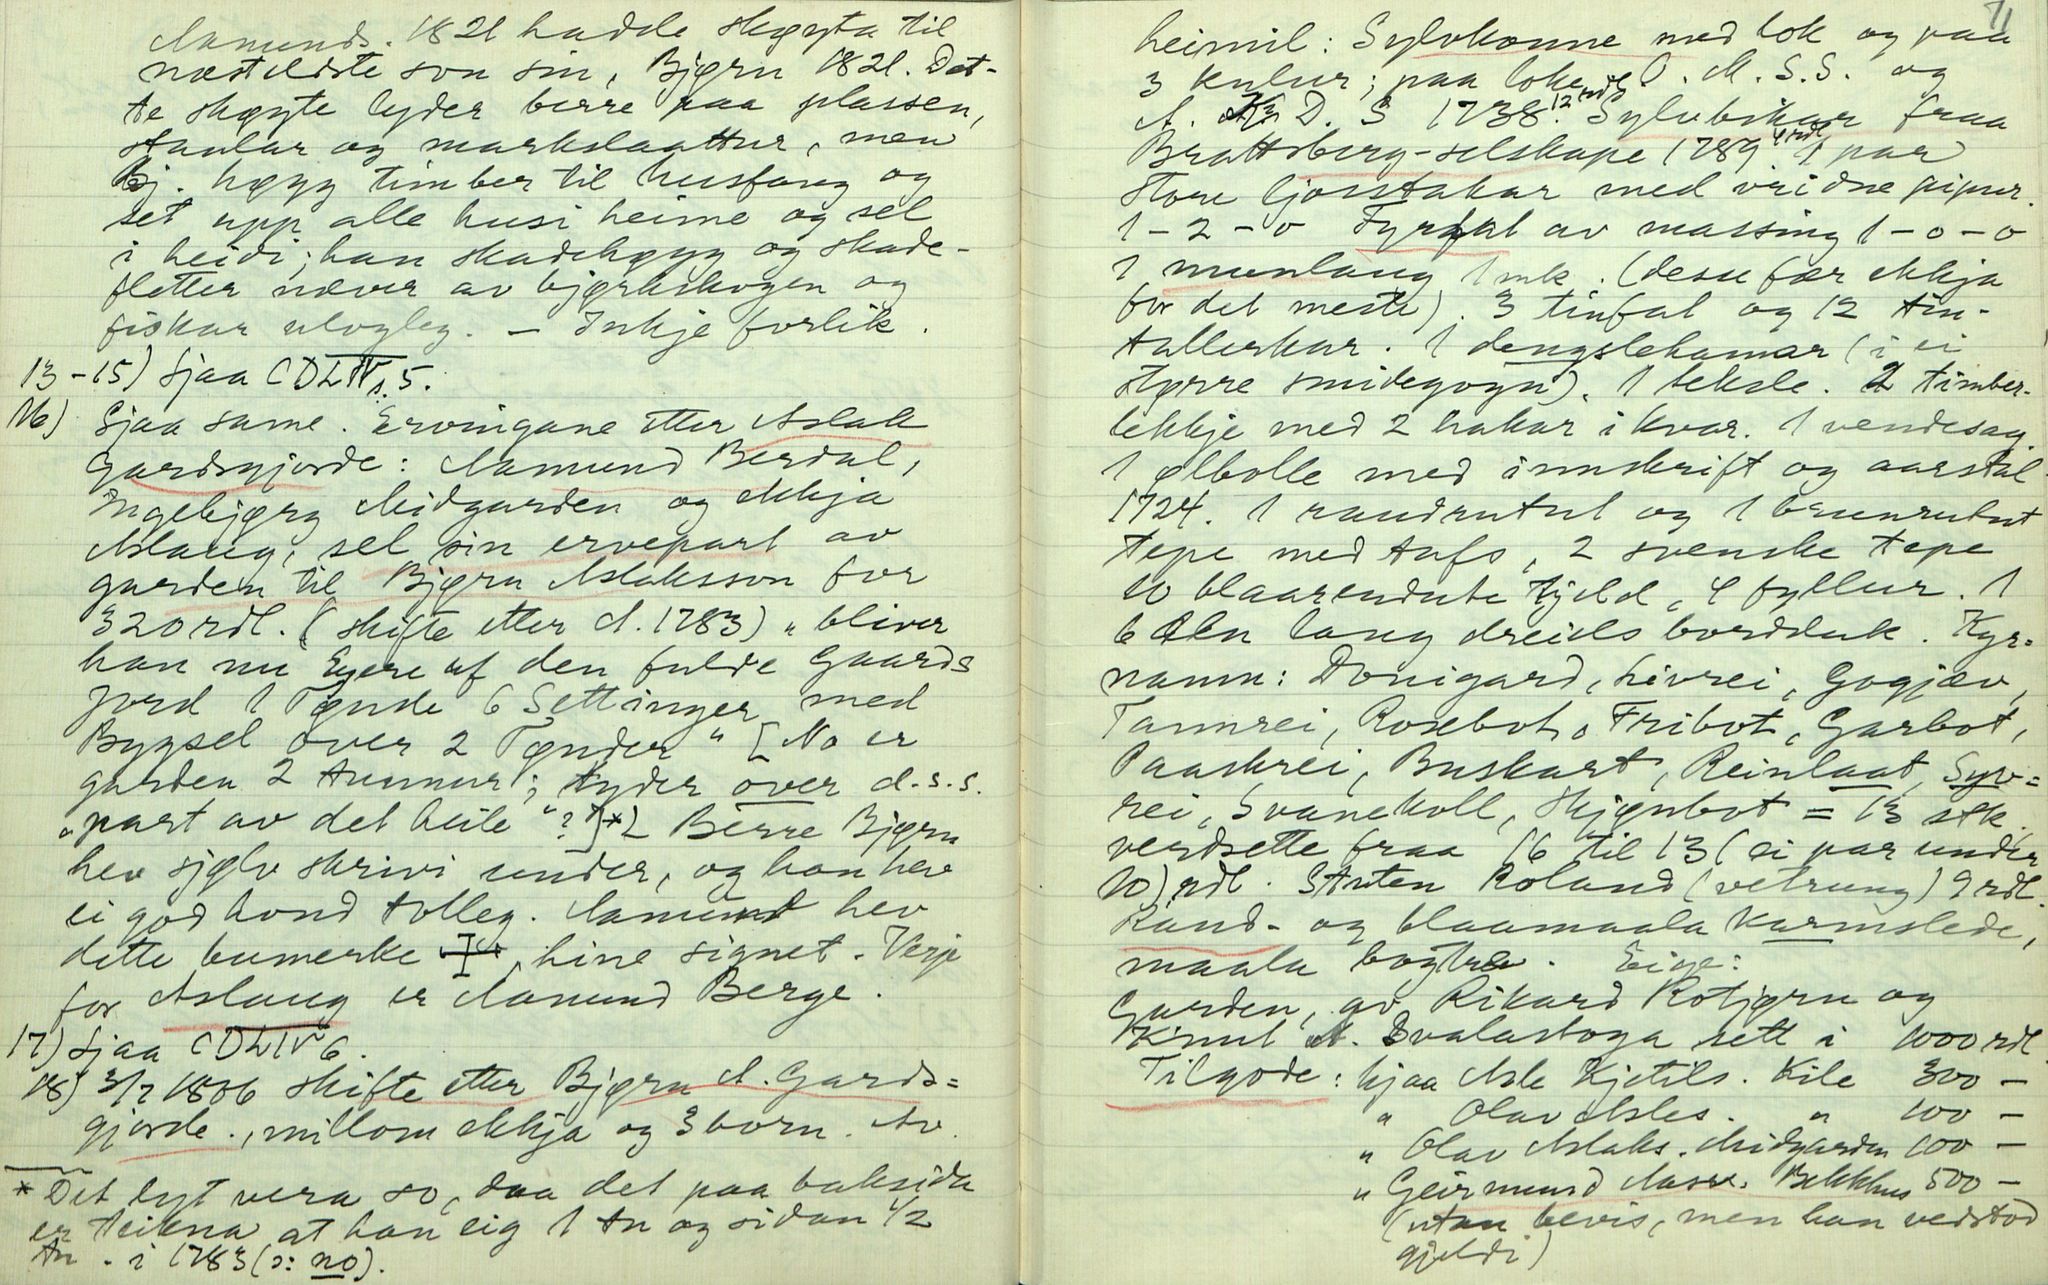 Aamunds. 1821 hadde skøyta til
næsteldste son sin, Bjørn 1821. Det-
te skøyte lyder berre paa plassen,
stanlar og markslaattur, men
Bj. høgg timber til husfang og
set upp alle husi heime og sel
i heidi; han skadehøgg og skade-
fletter næver av bjørkskogen og
fiskar ulogleg. – Inkje forlik.
13-15) Sjaa CDLIV, 5.
16) Sjaa same. Ervingane etter Aslak
Gardsgjorde: Aamund Berdal,
Ingebjørg Midgarden og ekkja
Aslaug, sel sin ervepart av
garden til Bjørn Aslaksson for
320 rdl. (skifte etter A. 1783) „bliver
han nu Eyere af den fulde Gaards
Jord 1 Tønde 6 Settinger med
Bygsel over 2 Tønder" [No er
garden 2 tunnur; tyder over d.s.s.
„part av det heile"?]* Berre Bjørn
hev sjølv skrivi under, og han hev
ei god hond tolleg. Aamund hev
dette bumerke hine signet. Verje
for Aslaug er Aamund Berge.
17) Sjaa CDLIV 6.
18) 3/7 1806 skifte etter Bjørn A. Gards=
gjorde, millom ekkja og 3 born. Av
* Det lyt vera so, daa det paa baksida
er teikna at han eig 1 tn og sidan 1/2
tn. i 1783 (ɔ: no).
71
heimil: Sylvkanne med lok og paa
3 kulur; paa loket O. M. S. S. og
A. K D. S 1738. 12 rdl. Sylvbikar fraa
Brattsberg-selskape 1789. 4 rdl. 1 par
store ljosstakar med vridne pipur.
1-2-0 Fyrfat av massing 1-0-0
1 munlaug 1 mk. (desse fær ekkja
for det meste). 3 tinfat og 12 tin-
tallerkar. 1 dengslehamar (i ei
større smidegogn). 1 teksle. 2 timber-
lekkje med 2 hakar i kvar. 1 vendesag.
1 ølbolle med innskrift og aarstal
1724. 1 raudrutut og 1 brunrutut
tepe med tafs, 2 svenske tepe
10 blaarendute tjeld, 4 fyllur. 1
6 Aln lang dreiels bordduk. Kyr=
namn: Donigard, Livrei, Gogjæv,
Tannrei, Rosebot, Fribot, Garbot,
Paaskrei, Buskart, Reinlaat, Syv=
rei, Svanekoll, Skjønbot = 13 stk.
verdsette fraa 16 til 13 (ei par under
10) rdl. Stuten Roland (vetrung) 9 rdl.
Raud- og blaamaala karmslede,
maala bogtre. Eige:
Garden, av Rikard Rotjørn og
Knut A. Svalastoga sett i 1000 rdl.
Tilgode: hjaa Asle Kjetils. Kile 300 –
" Olav Asles. " 100 –
" Olav Aslaks. Midgarden 100 –
" Geirmund Aasm. Bekkhus 500 –
(utan bevis, men han vedstod
gjeldi)